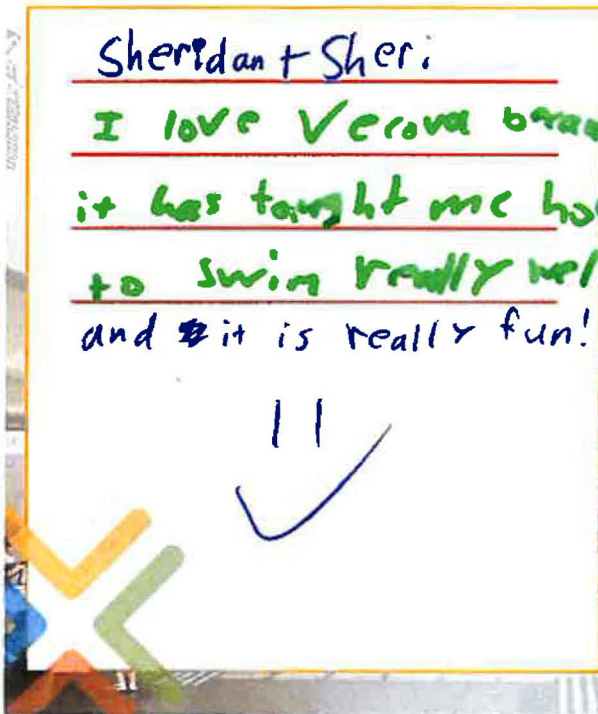 Sheridan + Sheri
I love Verova becau
it has taught me ho
to swim really wel
and it is really fun!